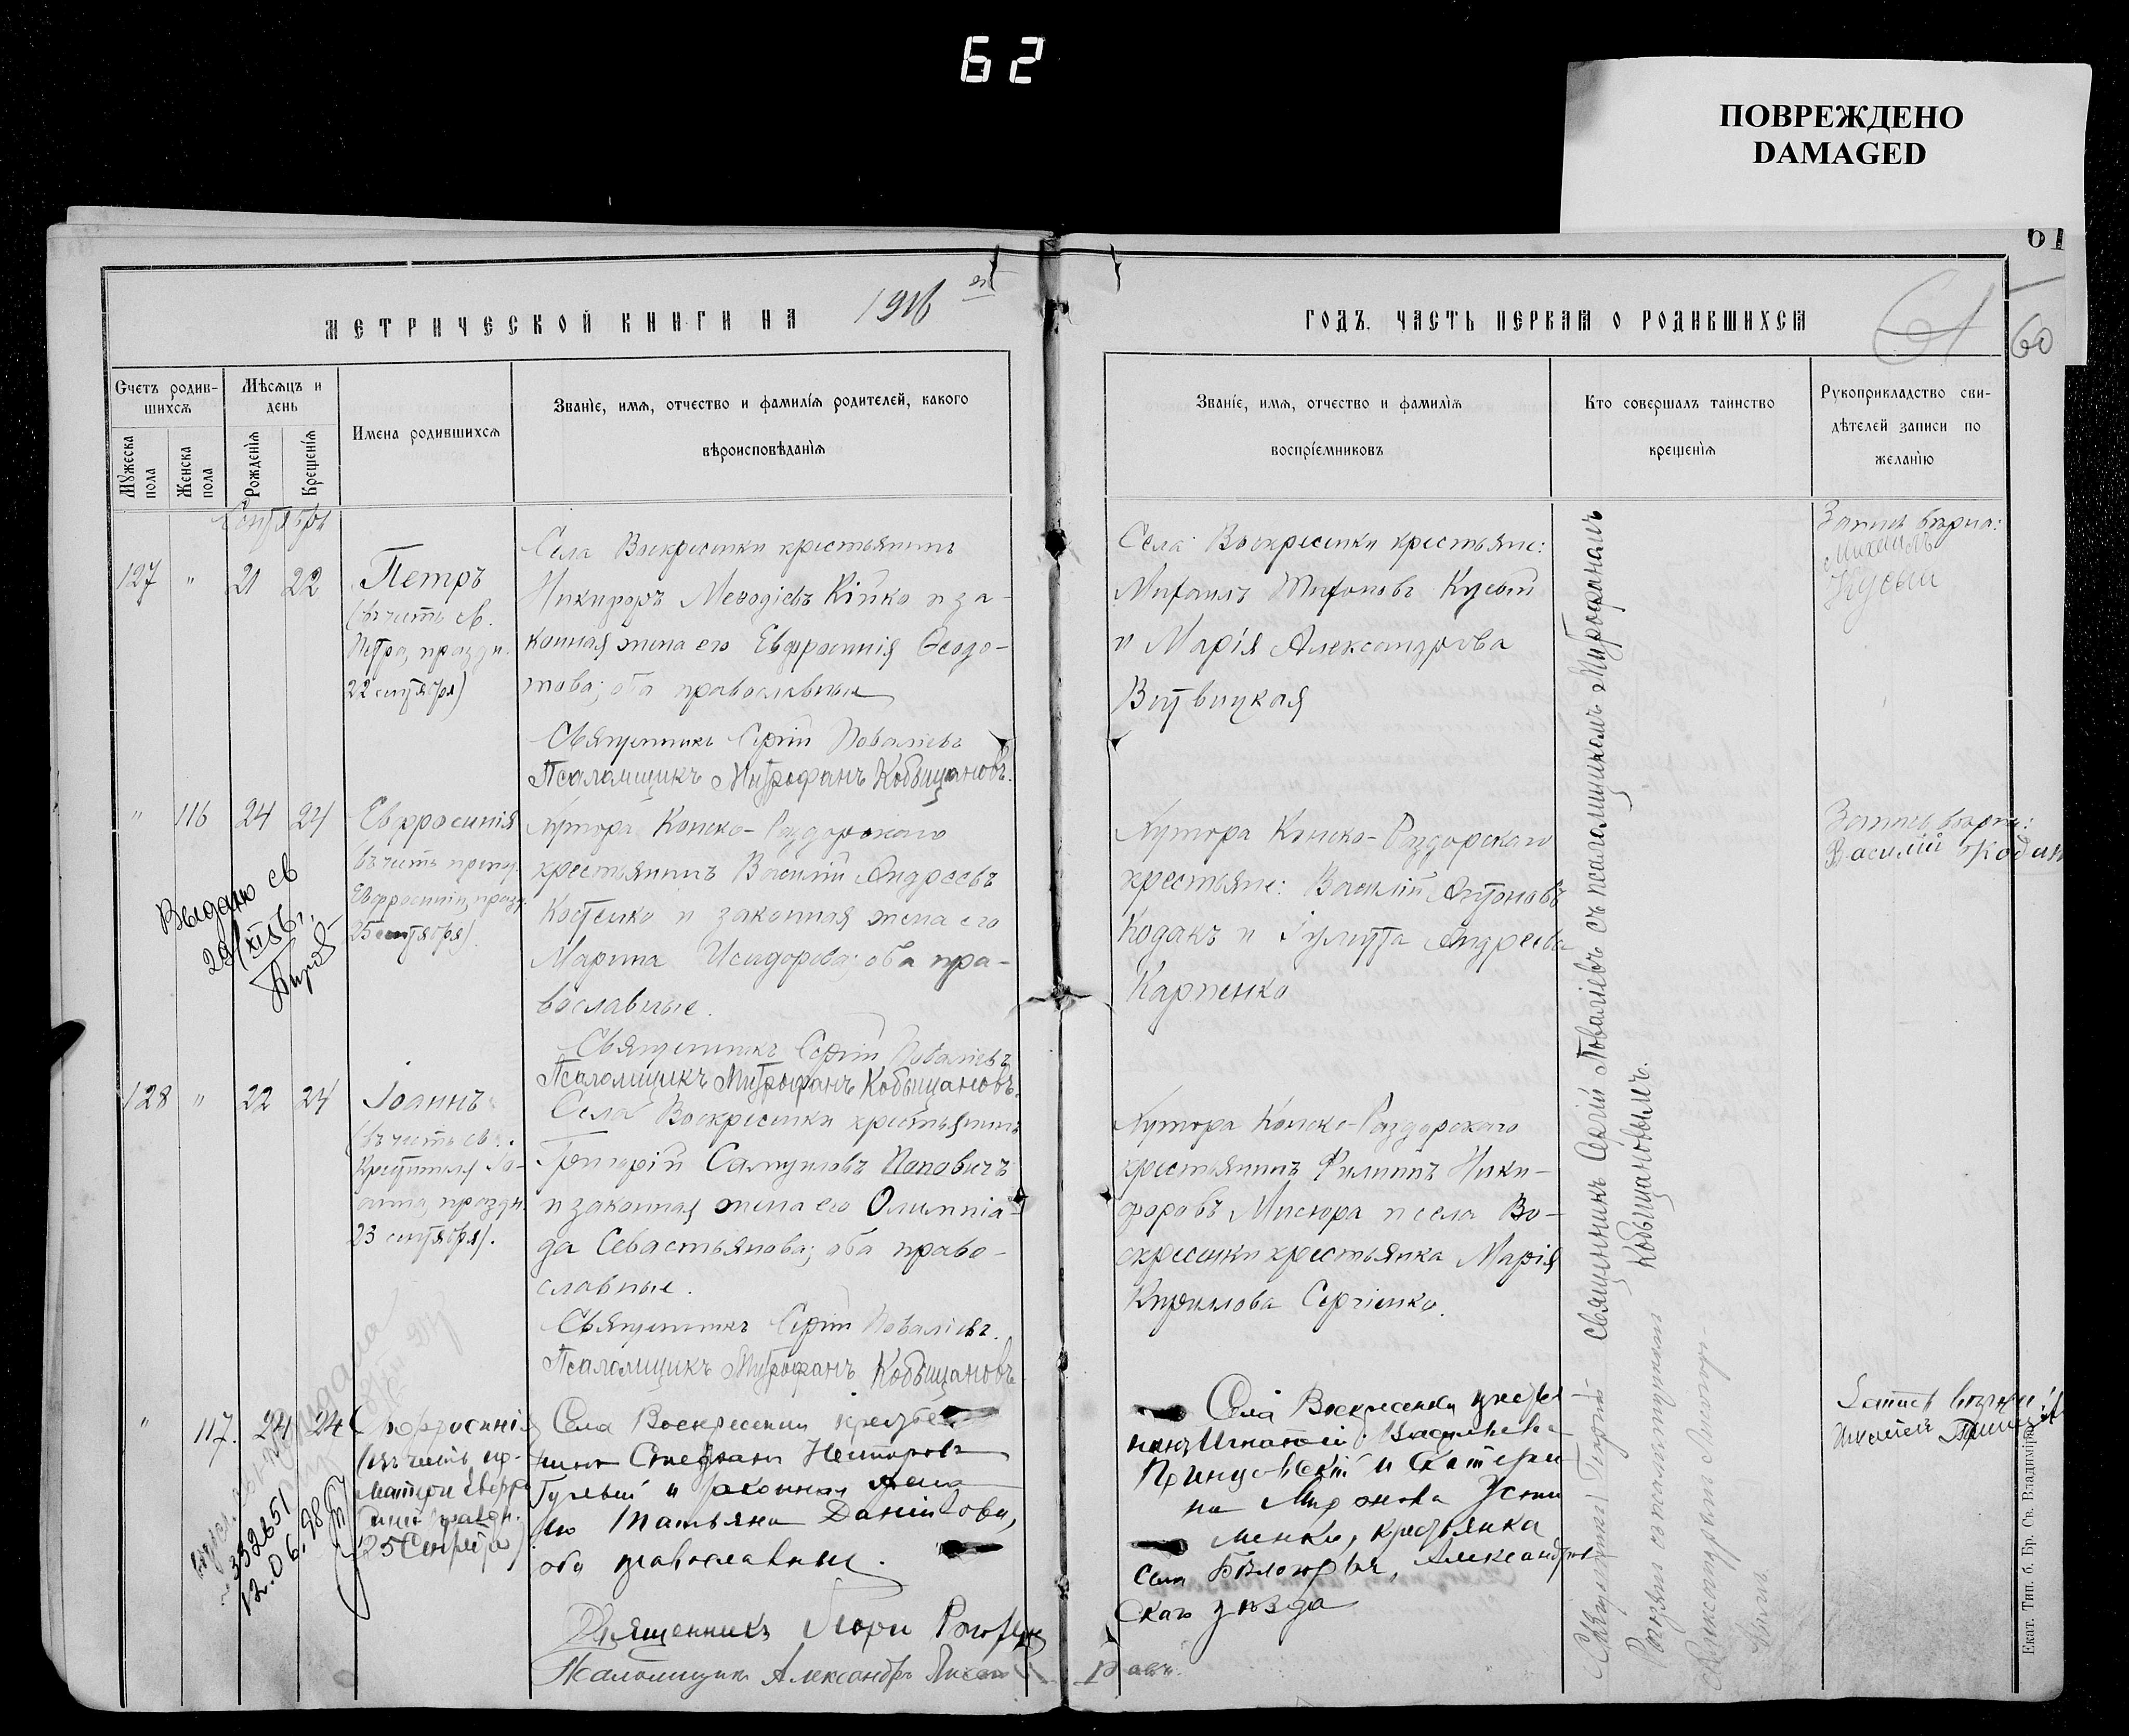 62
ПОВРЕЖДЕНО
DAMAGED
61
МЕТРИЧЕСКОЙ КНИГИ НА 1916
ГОДЪ, ЧАСТЬ ПЕРВАЯ О РОДИВШИХСЯ
61
60
Счетъ родив-
шихся
Мужеска пола
Женска пола
Мѣсяцъ и
день
Рожденія
Крещенія
Имена родившихся
Званіе, имя, отчество и фамилія родителей, какого
вѣроисповѣданія
Званіе, имя, отчество и фамилія
воспріемниковъ
Кто совершалъ таинство
крещенія
Рукоприкладство сви-
дѣтелей записи по
желанію
Сентябрь
127 " 21 22
Петръ
(въ честь св.
Петра, праздн.
22 сентября)
Села Воскресенки крестьянинъ
Никифоръ Меѳодіевъ Кійко и за-
конная жена его Евфросинія Ѳеодо-
това; оба православные
Священникъ Сергій Поваліевъ
Псаломщикъ Митрофанъ Кобыщановъ.
Села Воскресенки крестьяне:
Михаилъ Кусый
и Марія Александрова
Витвицкая
Запись вѣрна:
Михаилъ
Кусый
" 116 24 24
Евфросинія
въ честь препод.
Евфросиніи, празд.
25 сентября).
Хутора Конско-Раздорскаго
крестьянинъ Василій Андреевъ
Костенко и законная жена его
Марина Исидорова; оба пра-
вославные.
Священникъ Сергій Поваліевъ
Псаломщикъ Митрофанъ Кобыщановъ.
Хутора Конско-Раздорскаго
крестьяне: Василій Антоновъ
Кодакъ и Іулитта Андреева
Карпенко
Запись вѣрна:
Василій Кодак
Выдано св
29/XI 56 г.
128 " 22 24
Іоаннъ
(въ честь св.
Крестителя Іо-
анна, праздн.
23 сентября).
Села Воскресенки крестьянинъ
Григорій Самуиловъ Поповичъ
и законная жена его Олимпіа-
да Севастьянова; оба право-
славные.
Священникъ Сергій Поваліевъ.
Псаломщикъ Митрофанъ Кобыщановъ.
Хутора Конско-Раздорскаго
крестьянинъ Филиппъ Ники-
форовъ Мисюра и села Во-
скресенки крестьянка Марія
Кириллова Сергіенко.
Священникъ Сергій Поваліевъ съ псаломщикомъ Митрофаномъ
Кобыщановымъ.
" 117. 24 24
Евфросинія
(въ честь пр.
матери Евфро
синіи праздн.
25 Сентября)
Села Воскресенки крестья
нинъ Стефанъ
и законная жена
его Татьяна Даніилова,
оба православные.
Священникъ
Псаломщикъ Александръ
Села Воскресенки крестья
нинъ Игнатій Васильевъ
и Екатери
на Миронова Усти
менко, крестьянка
села Бѣлогорья, Александров
скаго уѣзда
Запись вѣрна:
392651
12.06.98
Екат. Тип. б. Бр. Св. Владиміра